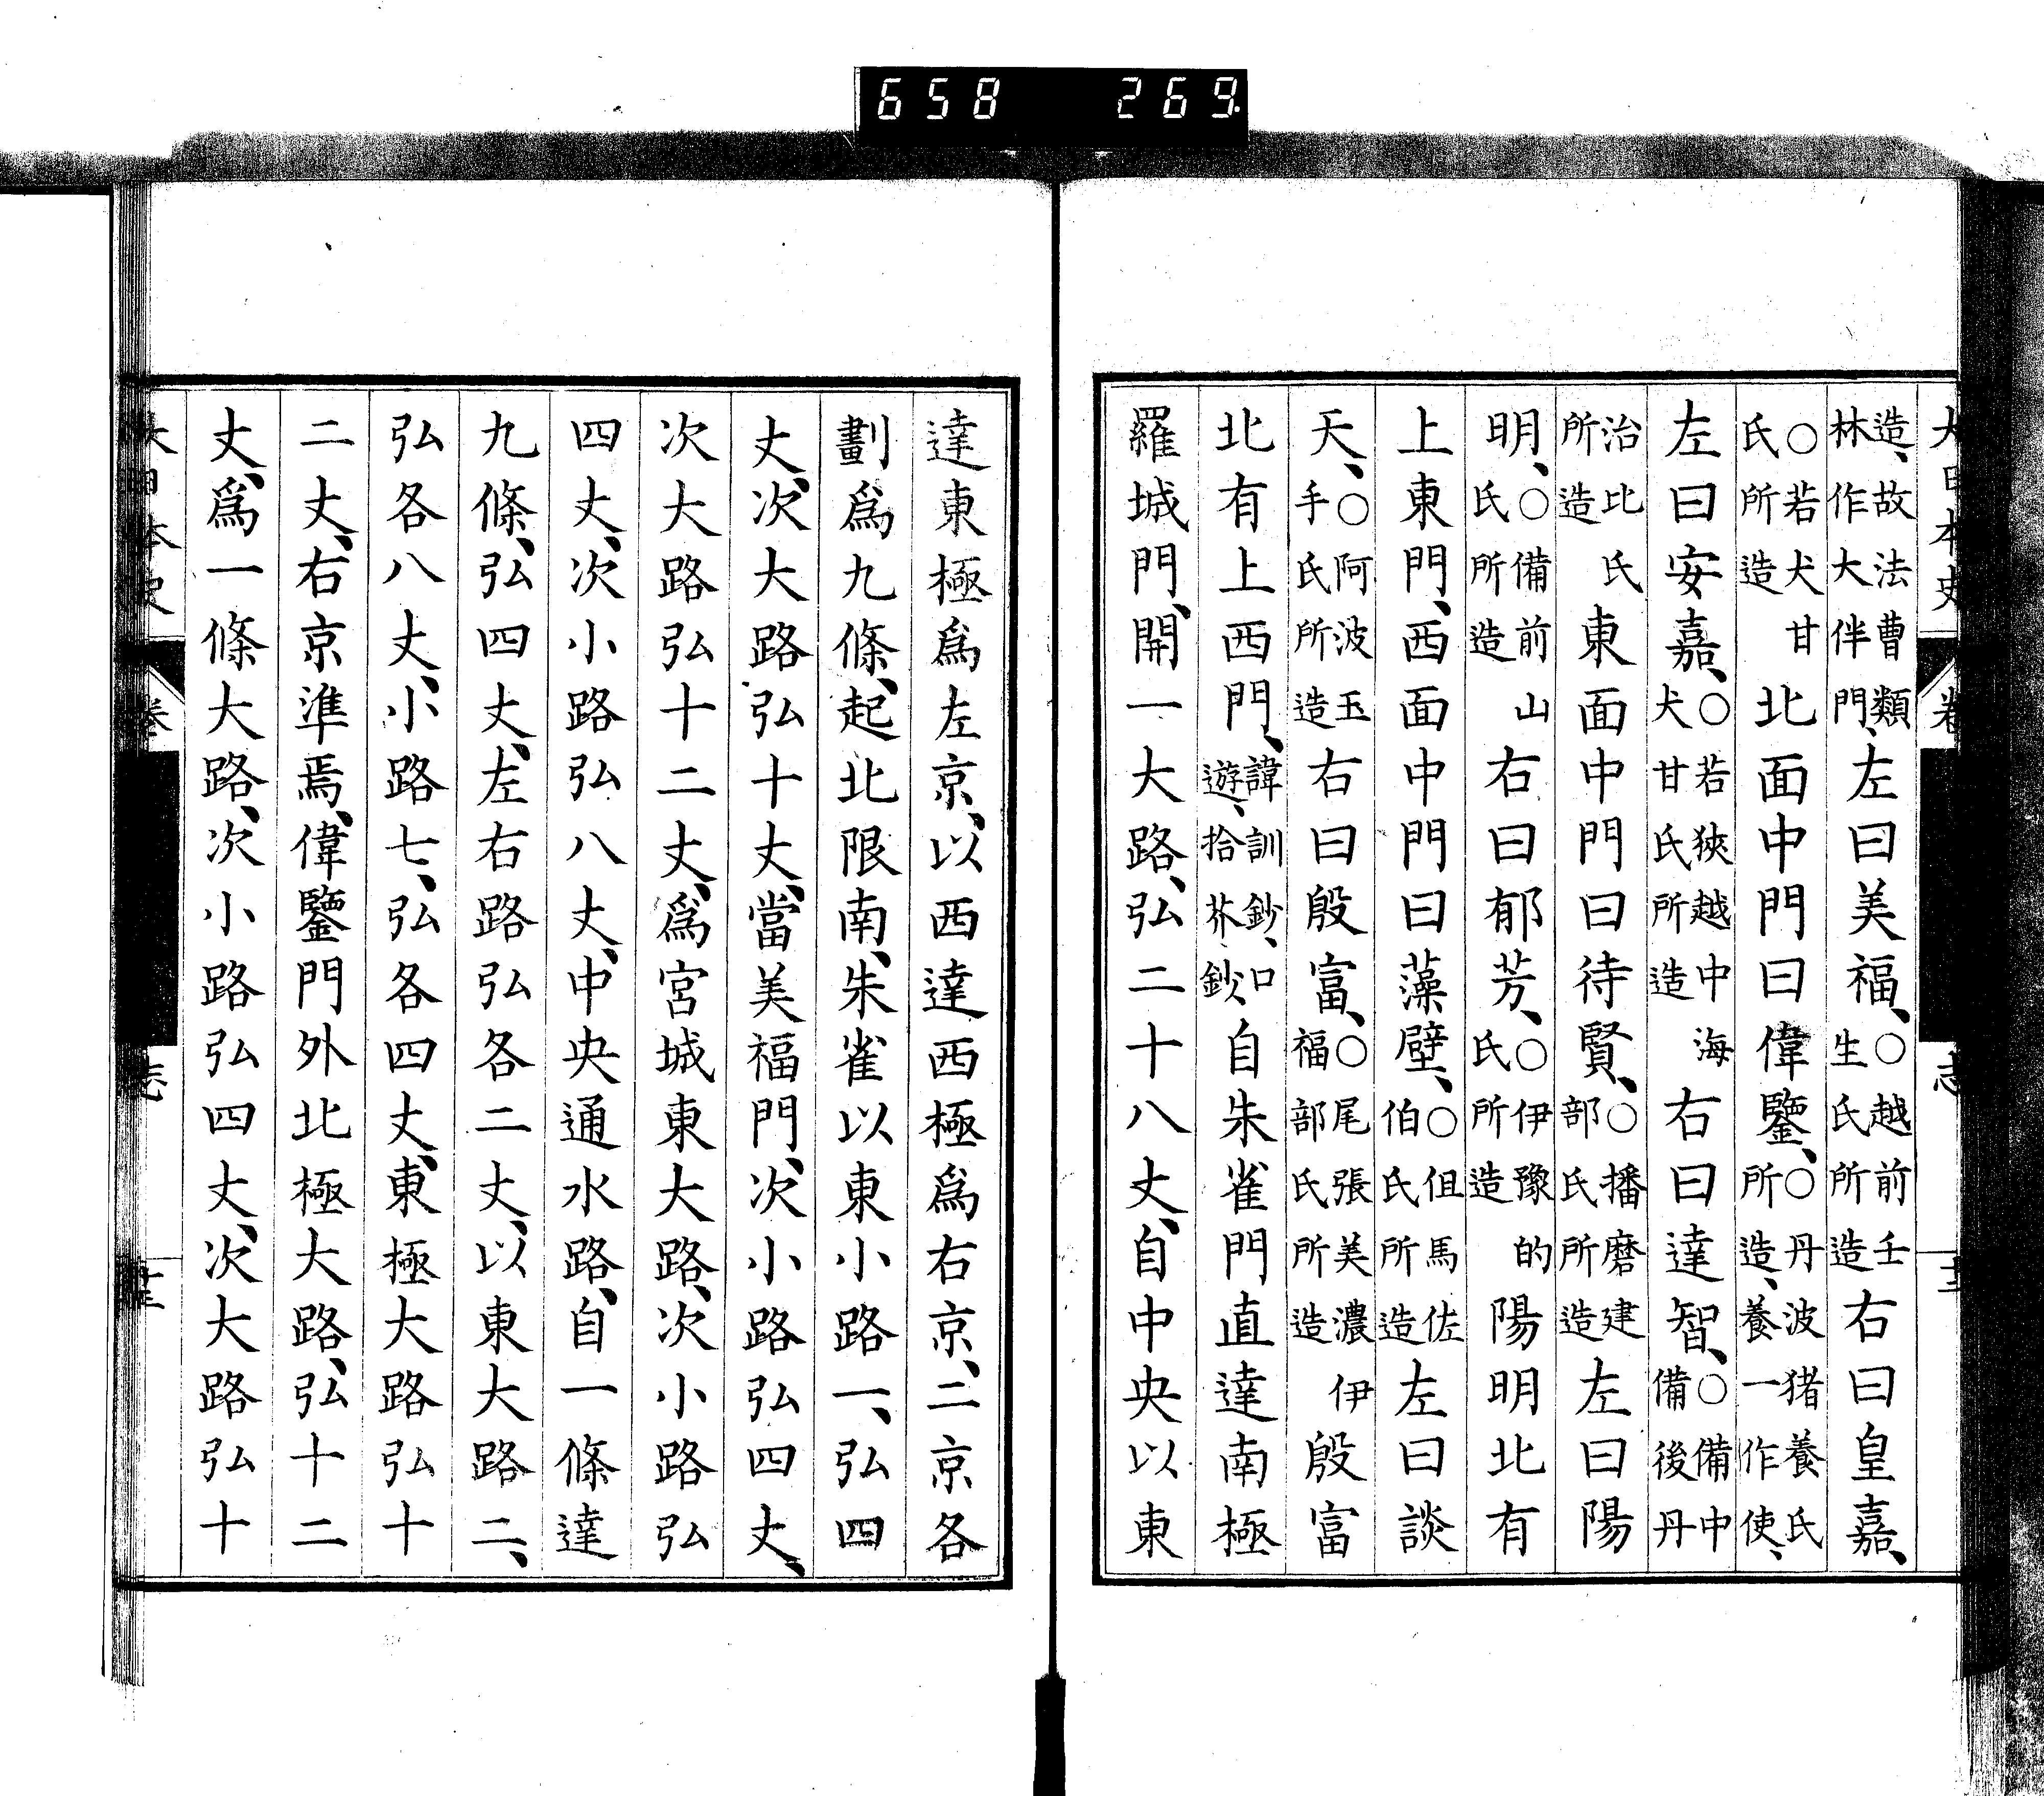 658 269.
大日本史 卷 志
造、故法曹類林作大伴門、左曰美福、○越前壬生氏所造右曰皇嘉、
○若犬甘氏所造北面中門曰偉鑒、○丹波猪養氏所造、養一作使、
左曰安嘉、○若狹越中海犬甘氏所造右曰達智、○備中備後丹
治比氏所造東面中門曰待賢、○播磨建部氏所造左曰陽
明、○備前山氏所造右曰郁芳、○伊豫的氏所造陽明北有
上東門、西面中門曰藻壁、○伹馬佐伯氏所造左曰談
天、○阿波玉手氏所造右曰殷富、○尾張美濃伊福部氏所造殷富
北有上西門、諱訓鈔、口遊、拾芥鈔自朱雀門直達南極
羅城門、開一大路、弘二十八丈、自中央以東
達東極爲左京、以西達西極爲右京、二京各
劃爲九條、起北限南、朱雀以東小路一、弘四
丈、次大路弘十丈、當美福門、次小路弘四丈、
次大路弘十二丈、爲宮城東大路、次小路弘
四丈、次小路弘八丈、中央通水路、自一條達
九條、弘四丈、左右路弘各二丈、以東大路二、
弘各八丈、小路七、弘各四丈、東極大路弘十
二丈、右京準焉、偉鑒門外北極大路、弘十二
丈、爲一條大路、次小路弘四丈、次大路弘十
大日本史 卷 志